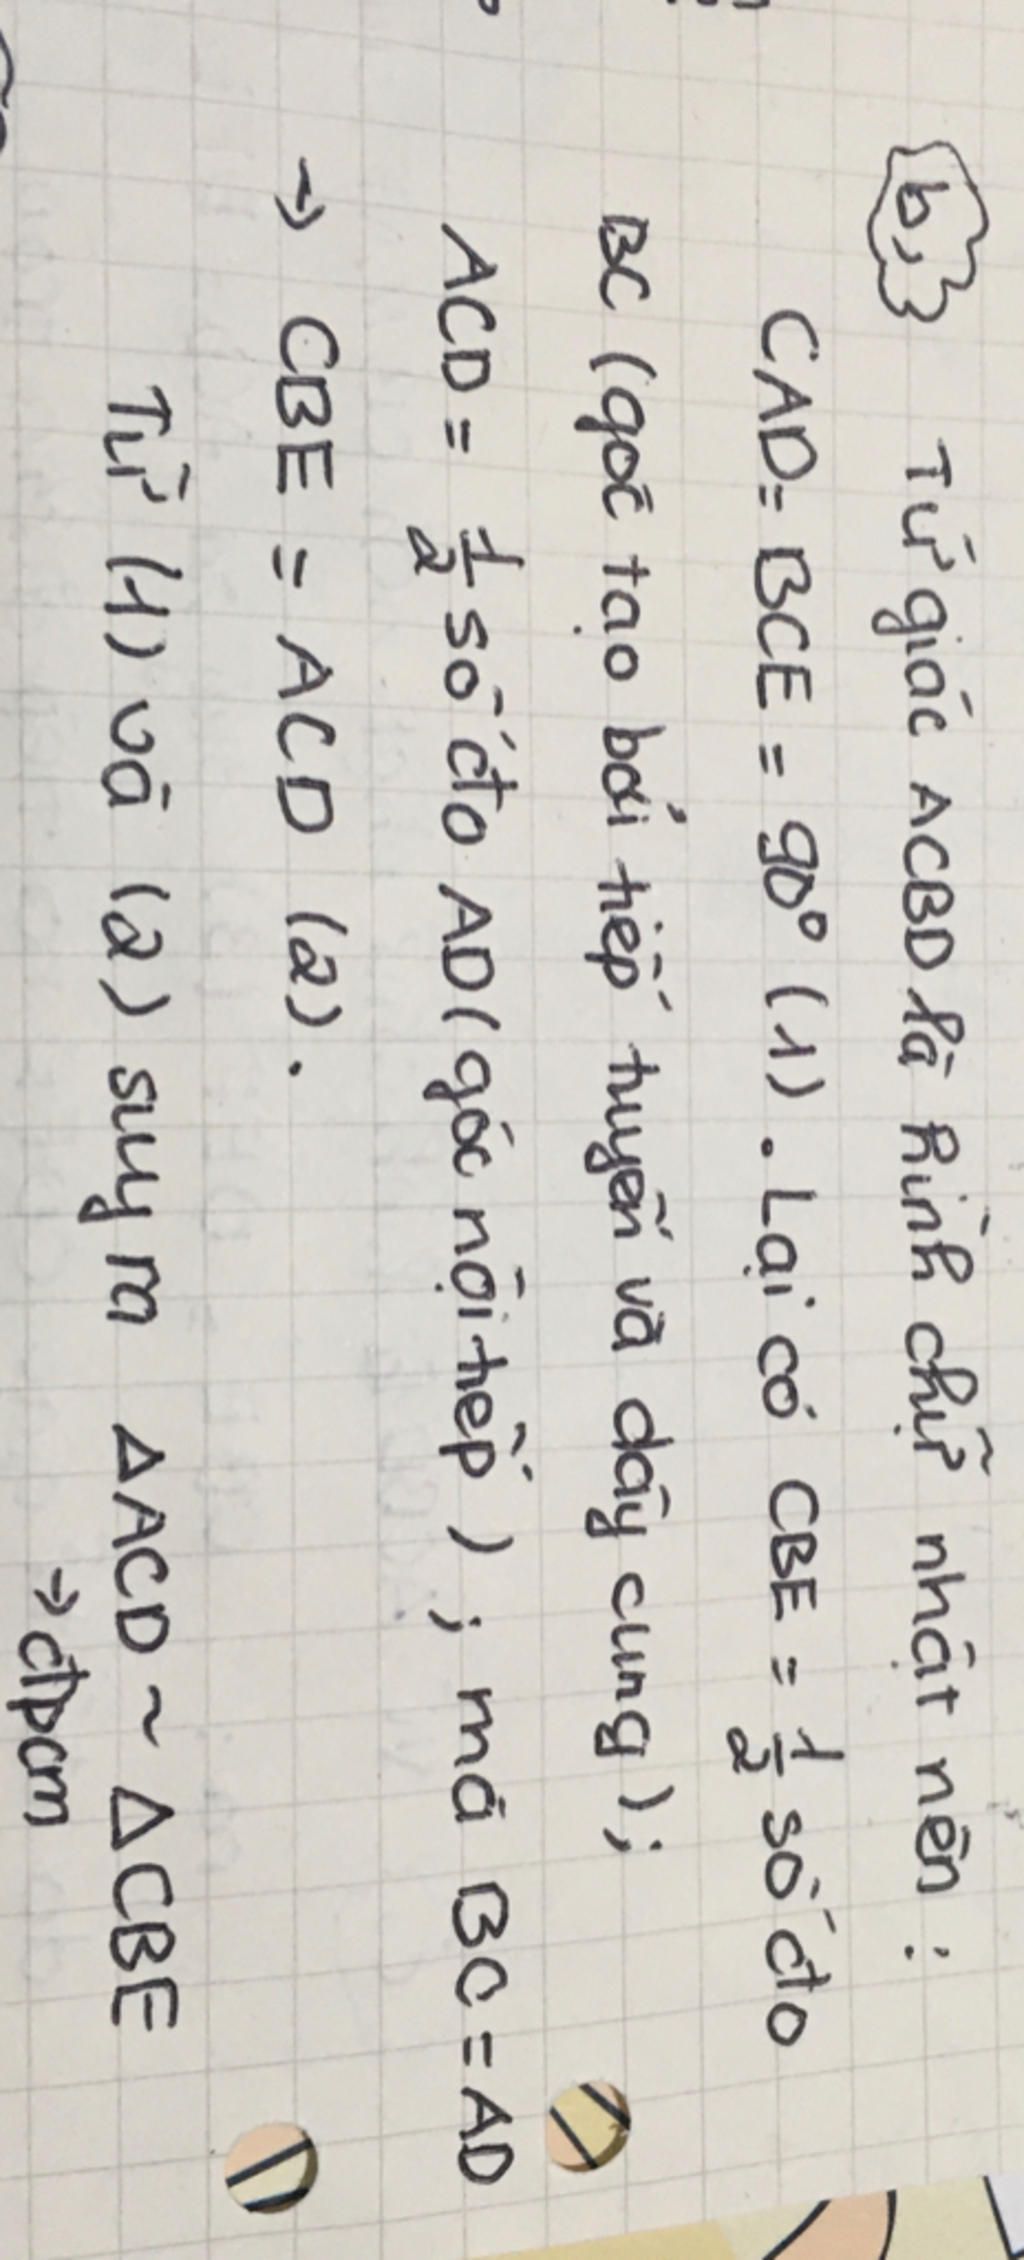 b, Tứ giác ACBD là hình chữ nhật nên :
CAD = BCE = 90° (1). Lại có CBE = 1/2 số đo
BC (góc tạo bởi tiếp tuyến và dây cung);
ACD = 1/2 số đo AD (góc nội tiếp) ; mà BC = AD
→ CBE = ACD (2).
Từ (1) và (2) suy ra ΔACD ~ ΔCBE
→ đpcm